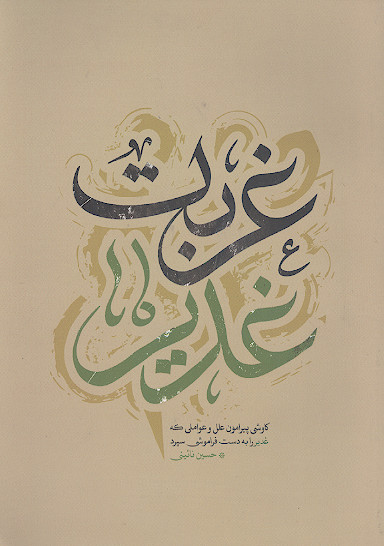 غربت
غدیر
کاوشی پیرامون علل و عواملی که
غدیر را به دست فراموشی سپرد
حسین نائینی